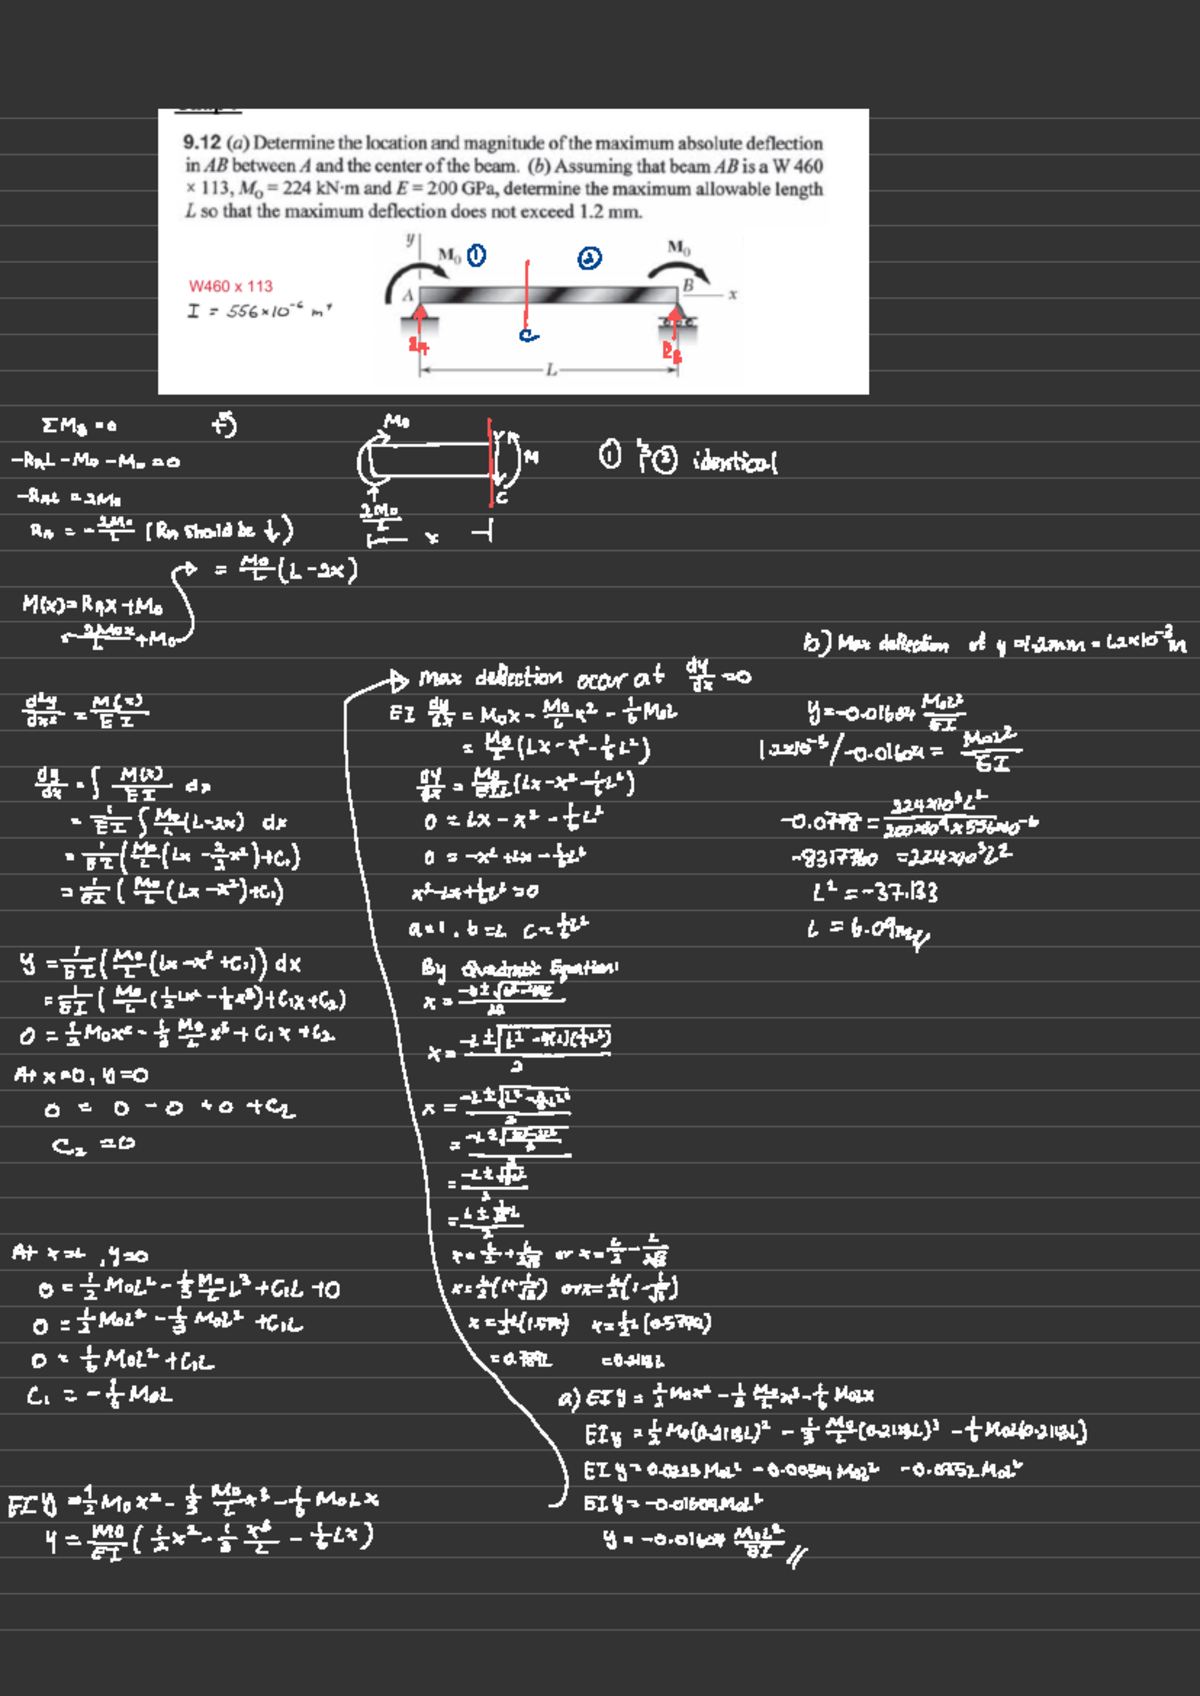 9.12 (a) Determine the location and magnitude of the maximum absolute deflection
in AB between A and the center of the beam. (b) Assuming that beam AB is a W 460
× 113, M₀ = 224 kN·m and E = 200 GPa, determine the maximum allowable length
L so that the maximum deflection does not exceed 1.2 mm.
y
M₀ ① ② M₀
W460 x 113
I = 556×10⁻⁶ m⁴
A B x
C
L
ΣM_B = 0
-R_A L - M₀ - M₀ = 0
-R_A L = 2M₀
R_A = -2M₀/L (R_A should be ↓)
M₀
V
M
C
2M₀/L
x
① & ② identical
= M₀/L (L-2x)
M(x) = R_A x + M₀
= -2M₀x/L + M₀
d²y/dx² = M(x)/EI
dy/dx = ∫ M(x)/EI dx
= 1/EI ∫ M₀/L (L-2x) dx
= 1/EI (M₀/L (Lx - 2/2 x²) + C₁)
= 1/EI (M₀/L (Lx - x²) + C₁)
y = 1/EI (M₀/L (Lx - x² + C₁)) dx
= 1/EI (M₀/L (1/2 Lx² - 1/3 x³) + C₁x + C₂)
0 = 1/2 M₀x² - 1/3 M₀/L x³ + C₁x + C₂
At x=0, y=0
0 = 0 - 0 + 0 + C₂
C₂ = 0
At x=L, y=0
0 = 1/2 M₀L² - 1/3 M₀/L L³ + C₁L + 0
0 = 1/2 M₀L² - 1/3 M₀L² + C₁L
0 = 1/6 M₀L² + C₁L
C₁ = -1/6 M₀L
EIy = 1/2 M₀x² - 1/3 M₀/L x³ - 1/6 M₀Lx
y = M₀/EI (1/2 x² - 1/3 x³/L - 1/6 Lx)
Max deflection occur at dy/dx = 0
EI dy/dx = M₀x - M₀/L x² - 1/6 M₀L
= M₀/L (Lx - x² - 1/6 L²)
dy/dx = M₀/EIL (Lx - x² - 1/6 L²)
0 = Lx - x² - 1/6 L²
0 = -x² + Lx - 1/6 L²
x² - Lx + 1/6 L² = 0
a=1, b=L c=1/6 L²
By Quadratic Equation:
x = -b ± √(b² - 4ac) / 2a
x = -L ± √(L² - 4(1)(1/6 L²)) / 2
x = L/2 + L/2√3 or x = L/2 - L/2√3
x = L/2 (1 + 1/√3) or x = L/2 (1 - 1/√3)
= 0.789L = 0.2113L
a) EIy = 1/2 M₀x² - 1/3 M₀/L x³ - 1/6 M₀Lx
EIy = 1/2 M₀(0.2113L)² - 1/3 M₀/L (0.2113L)³ - 1/6 M₀L(0.2113L)
EIy = 0.0223M₀L² - 0.00314M₀L² - 0.0352M₀L²
EIy = -0.01604M₀L²
y = -0.01604 M₀L²/EI //
b) Max deflection of y = 1.2mm = 1.2×10⁻³ m
y = -0.01604 M₀L²/EI
1.2×10⁻³/-0.01604 = M₀L²/EI
-0.0748 = 224×10³L² / 200×10⁹ × 556×10⁻⁶
-8317760 = 224×10³L²
L² = -37.133
L = 6.09m //